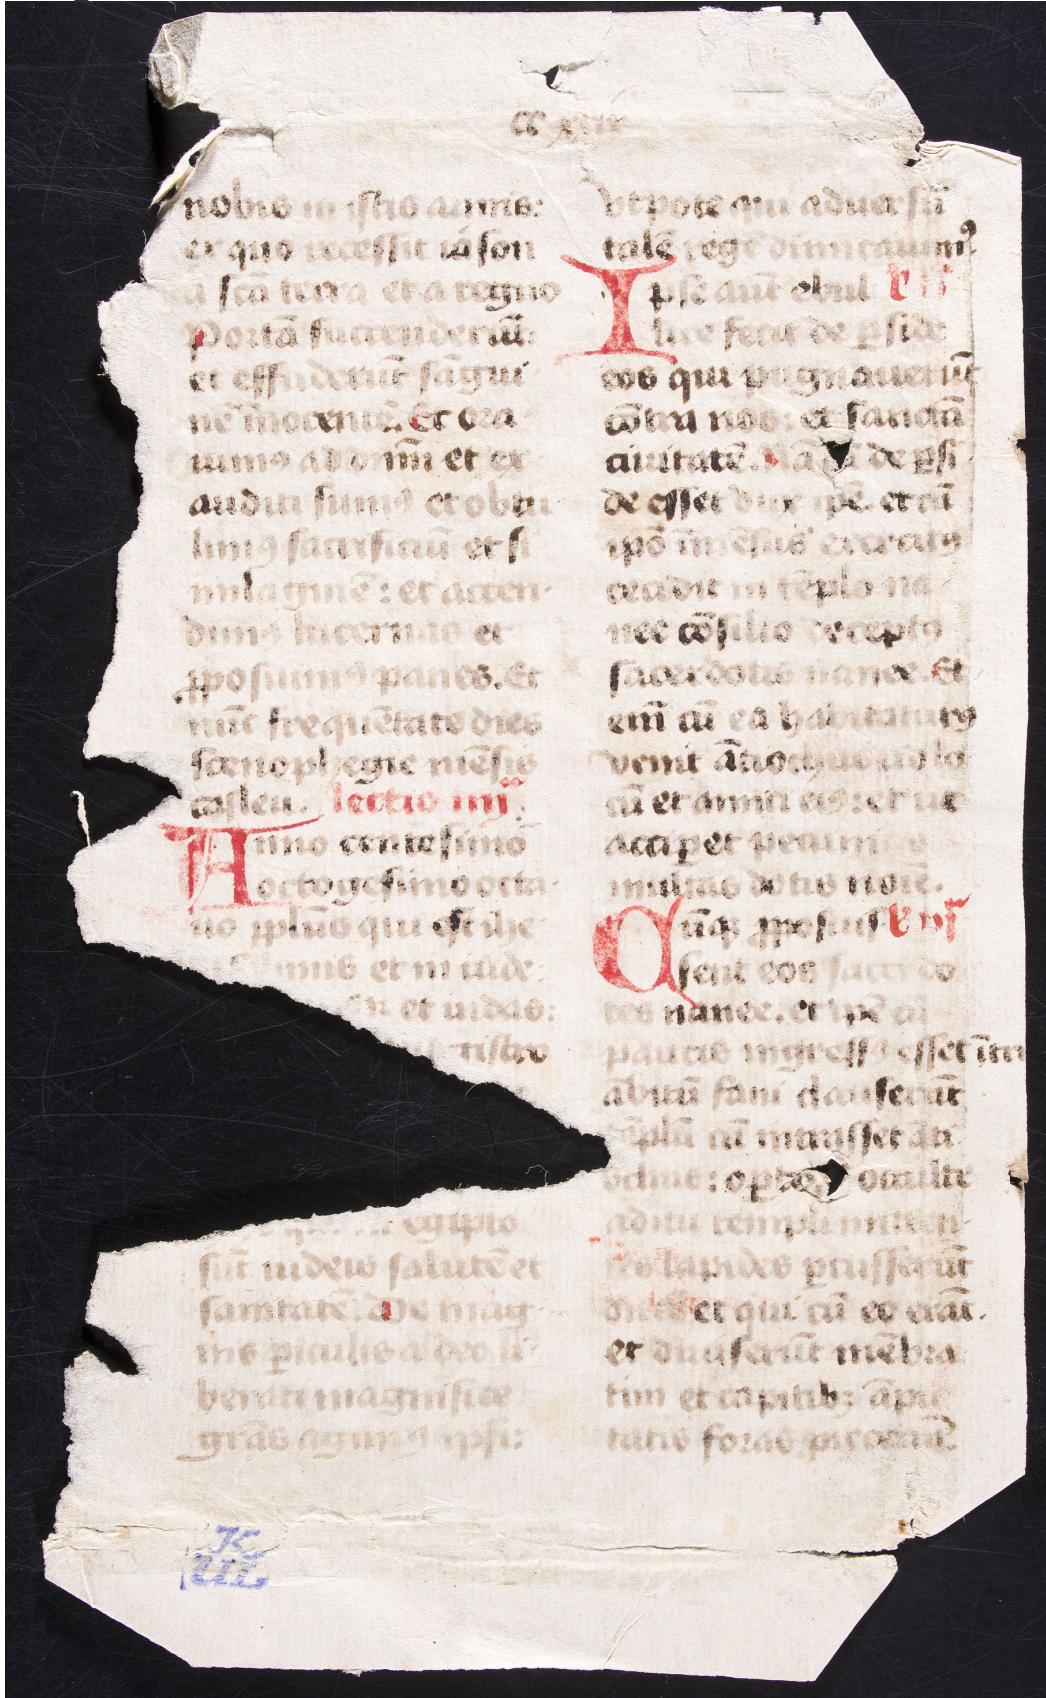 CC xviii
nobis in istis annis:
ex quo recessit iāson
a scā terra et a regno
Portā succenderūt:
et effuderūt sāgui
nē īnocentē. Et ora
uimꝰ ad dnm̄ et ex
auditi sumꝰ et obtu
limꝰ sacrificiū et si
milaginē: et accen-
dimꝰ lucernas et
ꝓposuimꝰ panes. Et
nūc frequētate dies
scenophegie mēsis
casleu. lectio iiij
Anno centesimo
octogesimo octa-
uo pplūs qui est ihe
imis et in iude
et iudas:
egipto
sūt iudeis salutē et
sanitatē. De mag
nis ꝑiculis a deo li
berati magnifice
grās agimꝰ ipsi:
vtpote qui aduersū
talē regē dimicauimꝰ
Ipse aūt ebul
lire fecit de ꝑside
eos qui pugnauerūt
cōtra nos: et sanctā
ciuitatē. Nā cū de ꝑsi
de esset dux ipē. et cū
ipō īmēsus exercitꝰ
cecidit in tēplo na
nee cōsilio decepti
sacerdotis nanee. Et
enī cū ea habitaturꝰ
venit ātiochus ad lo
cū et amici eiꝰ: et ut
acciꝑet pecunias
multas dotis noīe.
Cūq; ꝓposuis- l' vi
sent eos sacerdo
tes nanee. et ipē cū
paucis ingressꝰ esset ītra
ābitū fani clauserūt
tēplū cū intrasset āti
ochus: occulte
aditu templi mitten-
tes lapides ꝑcusserūt
ducē et qui cū eo erāt.
et diuiserūt mēbra
tim et capitib; āpu
tatis foras proiecerūt
K
UL